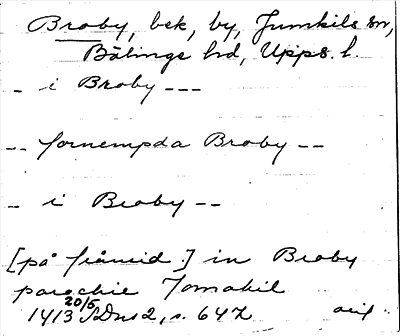 Broby, bek, by, Jumkils sn,
Bälinge hd, Upps. l.
- i Broby ---
-- fornempda Broby --
- i Broby --
[på frånsid.] in Broby
parochie Jomakil
1413 20/5 SDns 2, s. 642 orig.